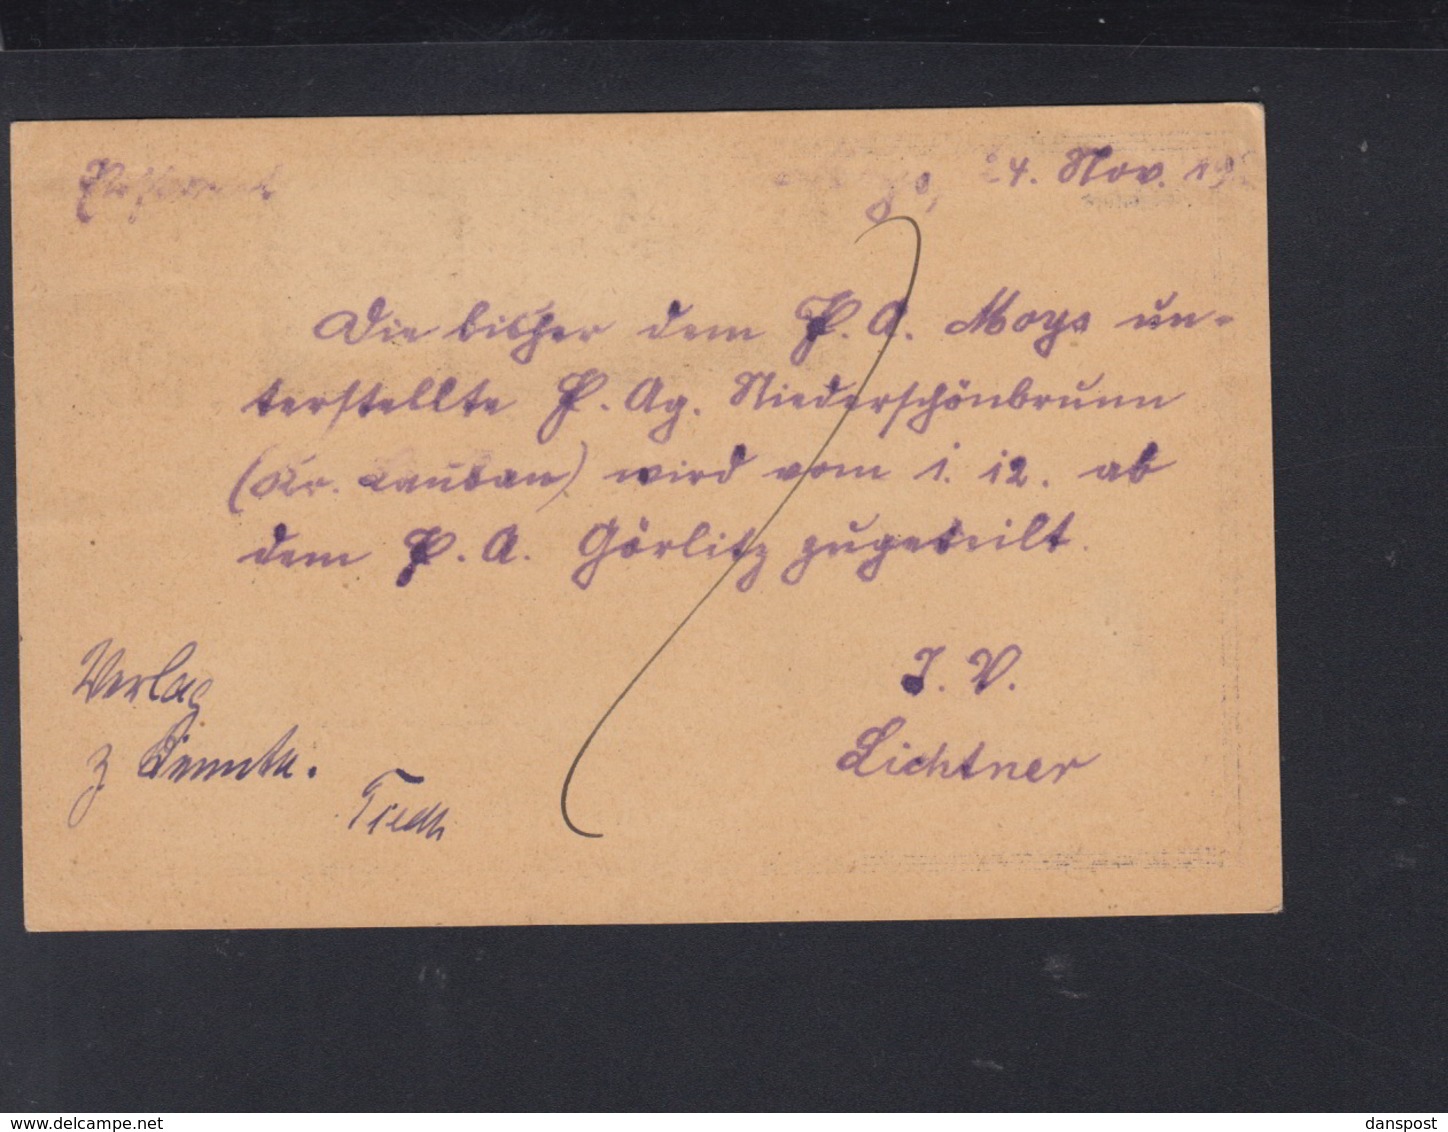 Postamt 24. Nov. 19
Die bisher dem P. A. Moys un-
terstellte P. Ag. Niederschönbrunn
(Kr. Lauban) wird vom 1. 12. ab
dem P. A. Görlitz zugeteilt.
I. V.
Lichtner
Verlag
z Kenntn.
www.delcampe.net
danspost